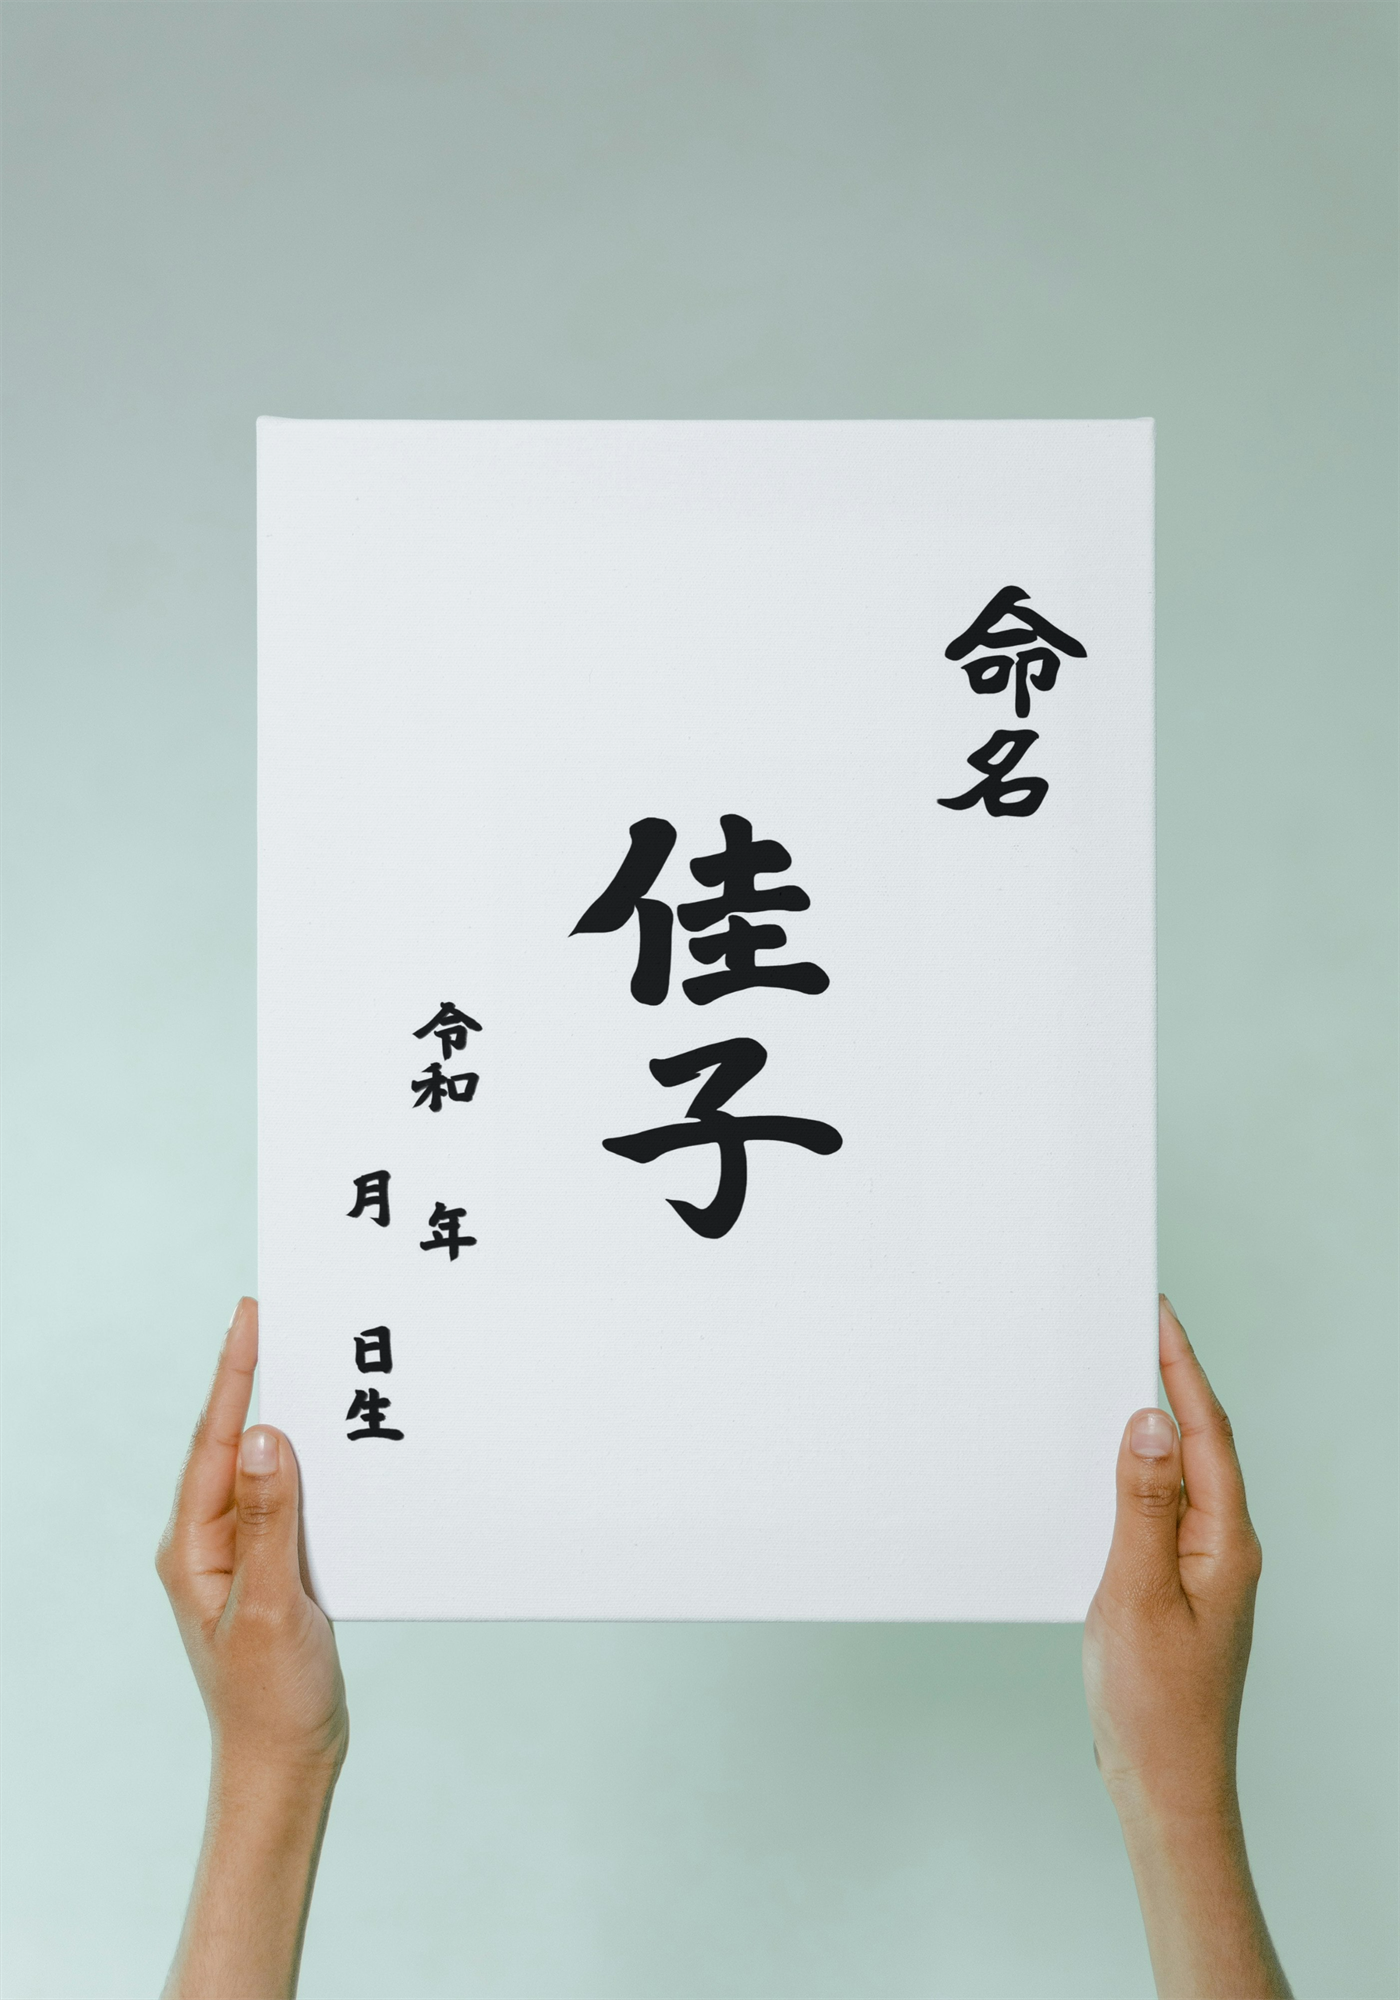 命名
佳子
令和 年
月 日生